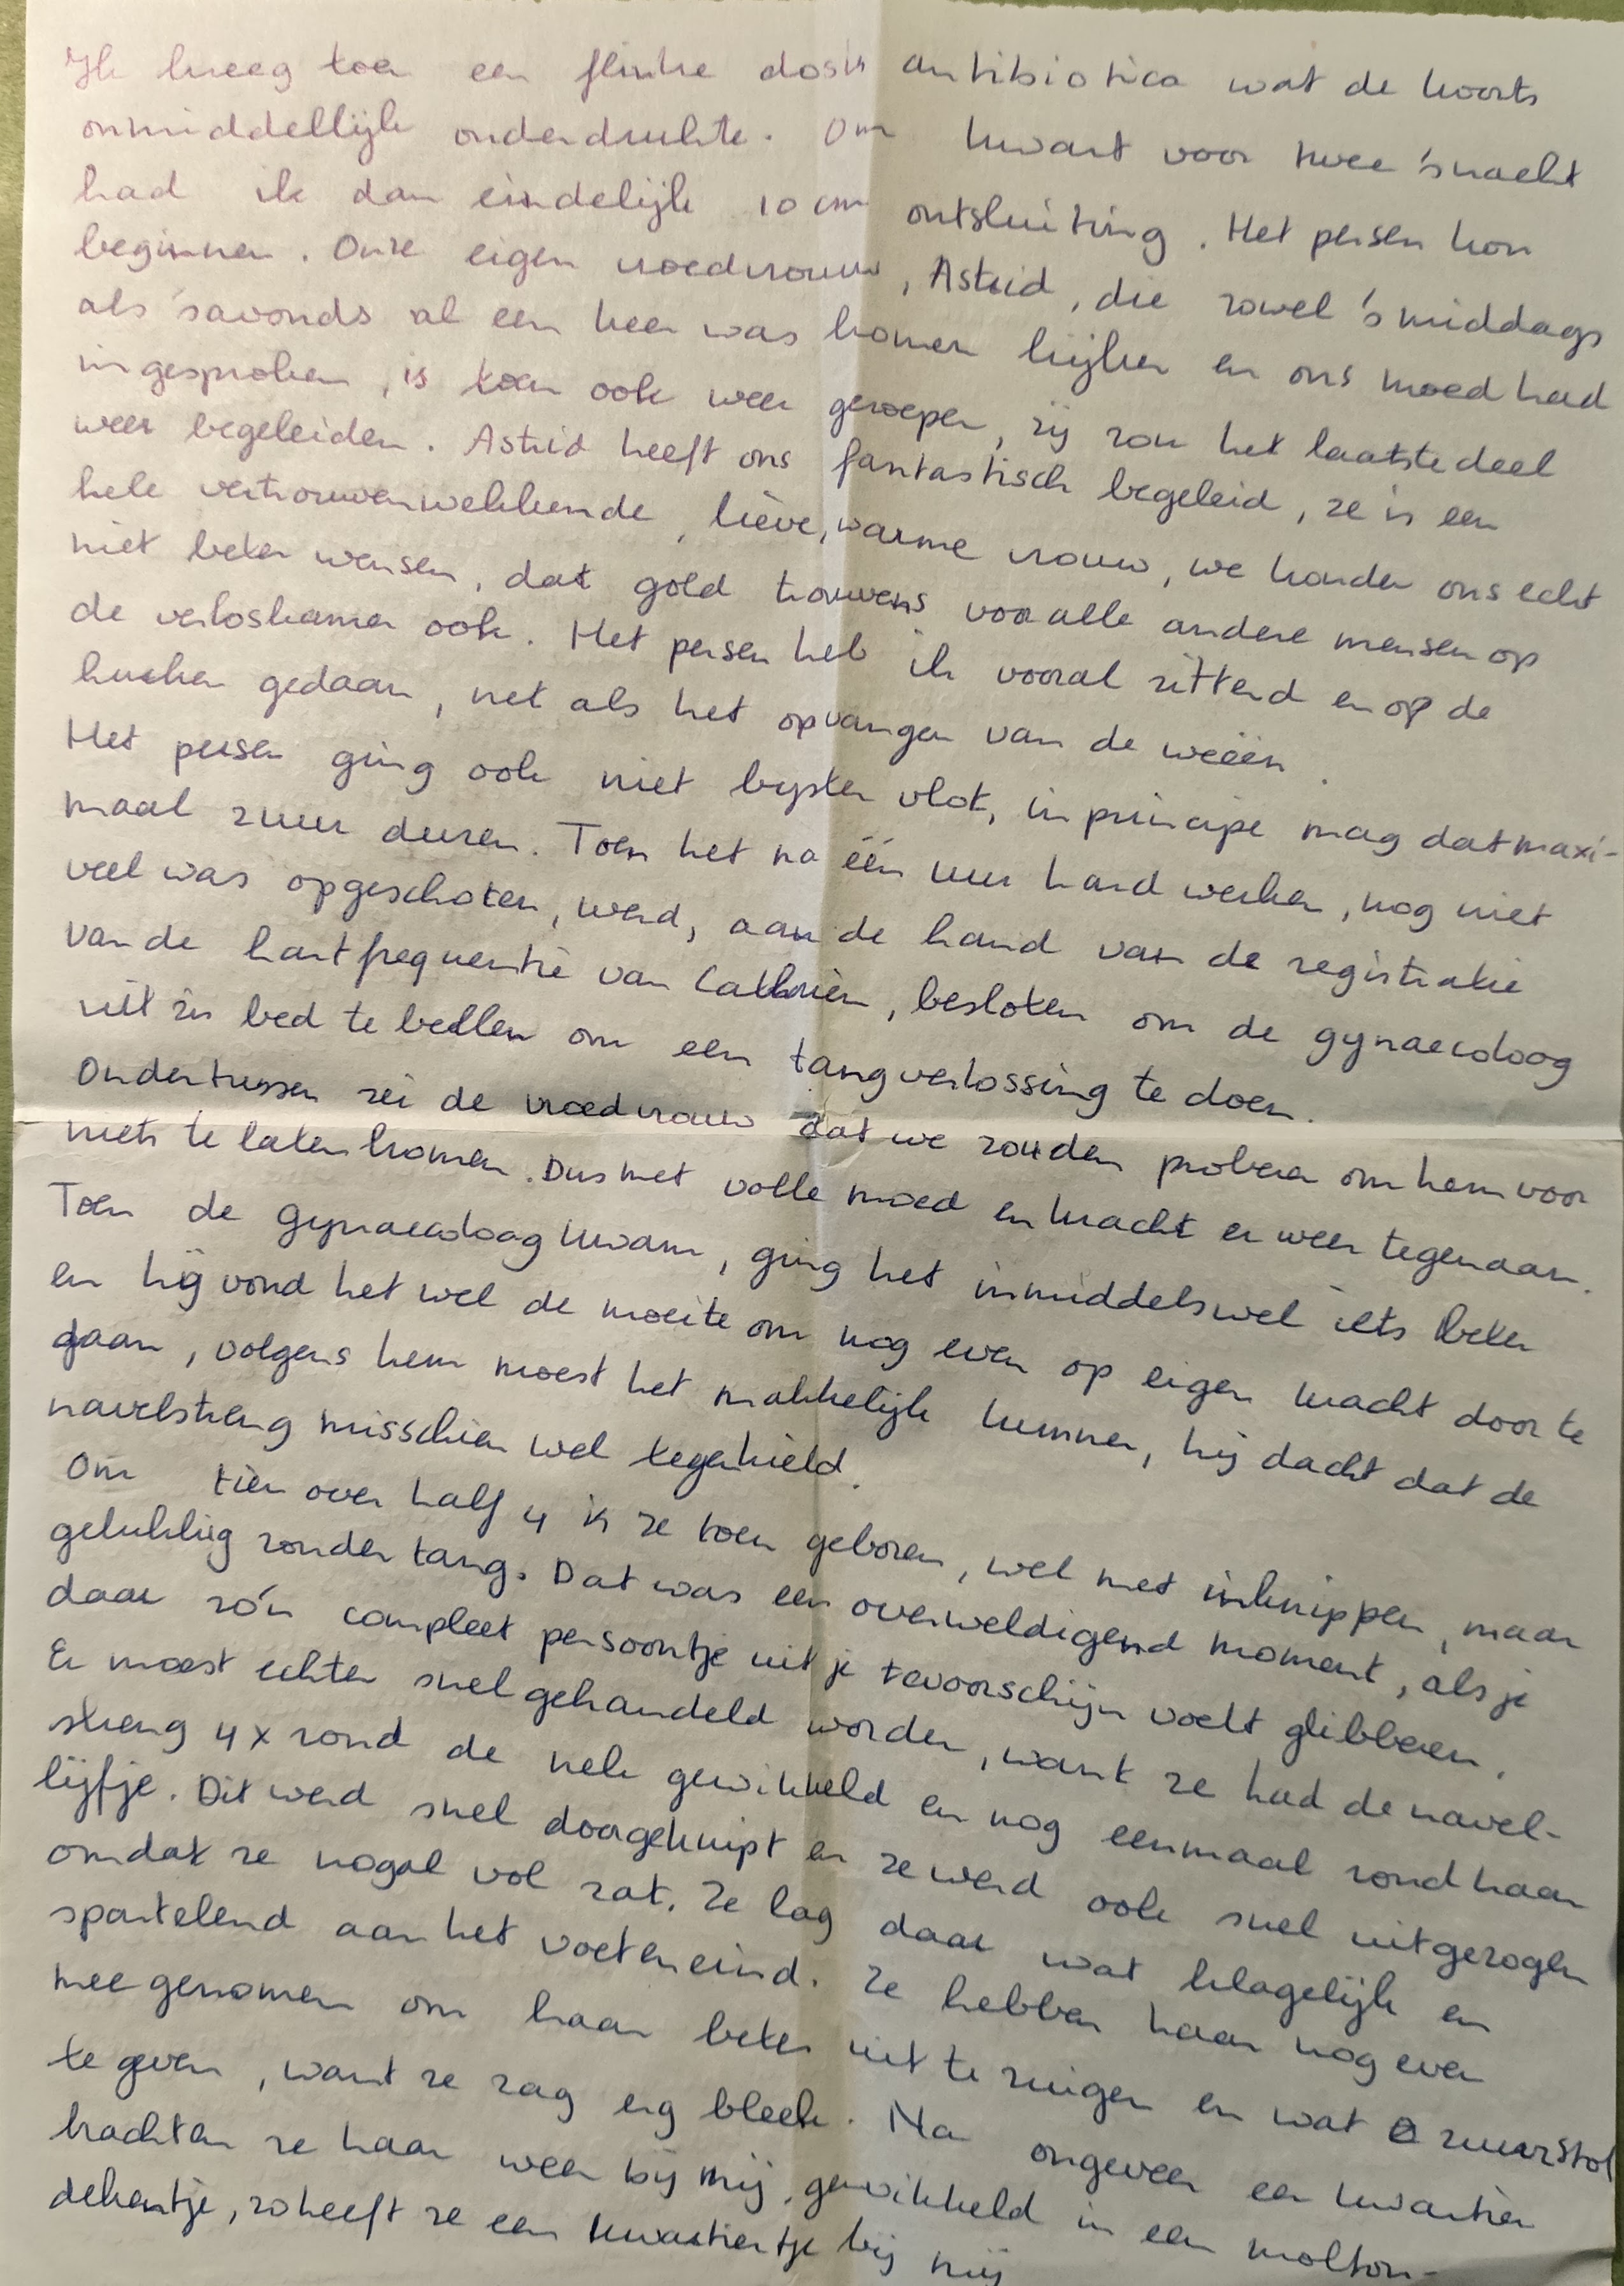 Ik kreeg toen een flinke dosis antibiotica wat de koorts
onmiddellijk onderdrukte. Om kwart voor twee 's nachts
had ik dan eindelijk 10 cm ontsluiting. Het persen kon
beginnen. Onze eigen vroedvrouw, Astrid, die zowel 's middags
als 's avonds al een keer was komen kijken en ons moed had
ingesproken, is toen ook weer geroepen, zij zou het laatste deel
weer begeleiden. Astrid heeft ons fantastisch begeleid, ze is een
hele vertrouwenwekkende, lieve, warme vrouw, we konden ons echt
niet beter wensen, dat gold trouwens voor alle andere mensen op
de verloskamer ook. Het persen heb ik vooral zittend en op de
hurken gedaan, net als het opvangen van de weeën.
Het persen ging ook niet bijster vlot, in principe mag dat maxi-
maal 2 uur duren. Toen het na één uur hard werken, nog niet
veel was opgeschoten, werd, aan de hand van de registratie
van de hartfrequentie van Cathrien, besloten om de gynaecoloog
uit z'n bed te bellen om een tangverlossing te doen.
Ondertussen zei de vroedvrouw dat we zouden proberen om hem voor
niets te laten komen. Dus met volle moed en kracht er weer tegenaan.
Toen de gynaecoloog kwam, ging het inmiddels wel iets beter
en hij vond het wel de moeite om nog even op eigen kracht door te
gaan, volgens hem moest het makkelijk kunnen, hij dacht dat de
navelstreng misschien wel tegenhield.
Om tien over half 4 is ze toen geboren, wel met inknippen, maar
gelukkig zonder tang. Dat was een overweldigend moment, als je
daar zó'n compleet persoontje uit je tevoorschijn voelt glibberen.
Er moest echter snel gehandeld worden, want ze had de navel-
streng 4x rond de nek gewikkeld en nog eenmaal rond haar
lijfje. Dit werd snel doorgeknipt en ze werd ook snel uitgezogen
omdat ze nogal vol zat. Ze lag daar wat klagelijk en
spartelend aan het voeteneind. Ze hebben haar nog even
meegenomen om haar beter uit te zuigen en wat zuurstof
te geven, want ze zag erg bleek. Na ongeveer een kwartier
brachten ze haar weer bij mij, gewikkeld in een molton-
dekentje, zo heeft ze een kwartiertje bij mij